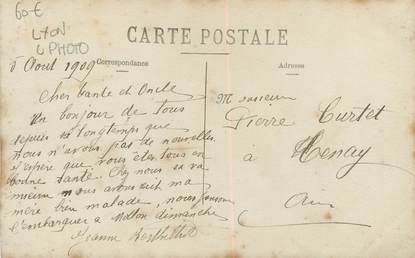 60€
LYON
CARTE POSTALE
Correspondance
Adresse
6 Aout 1909
Cher tante et Oncle
un bonjour de tous
depuis si longtemps que
nous n'avons pas de nouvelles
j'espère que vous êtes tous en
bonne santé. Chez nous sa va
mieux nous avons eut ma
mère bien malade, nous
l'embarquer a dimanche
Jeanne
Monsieur
Pierre Curtet
à Tenay
Ain
L PHOTO